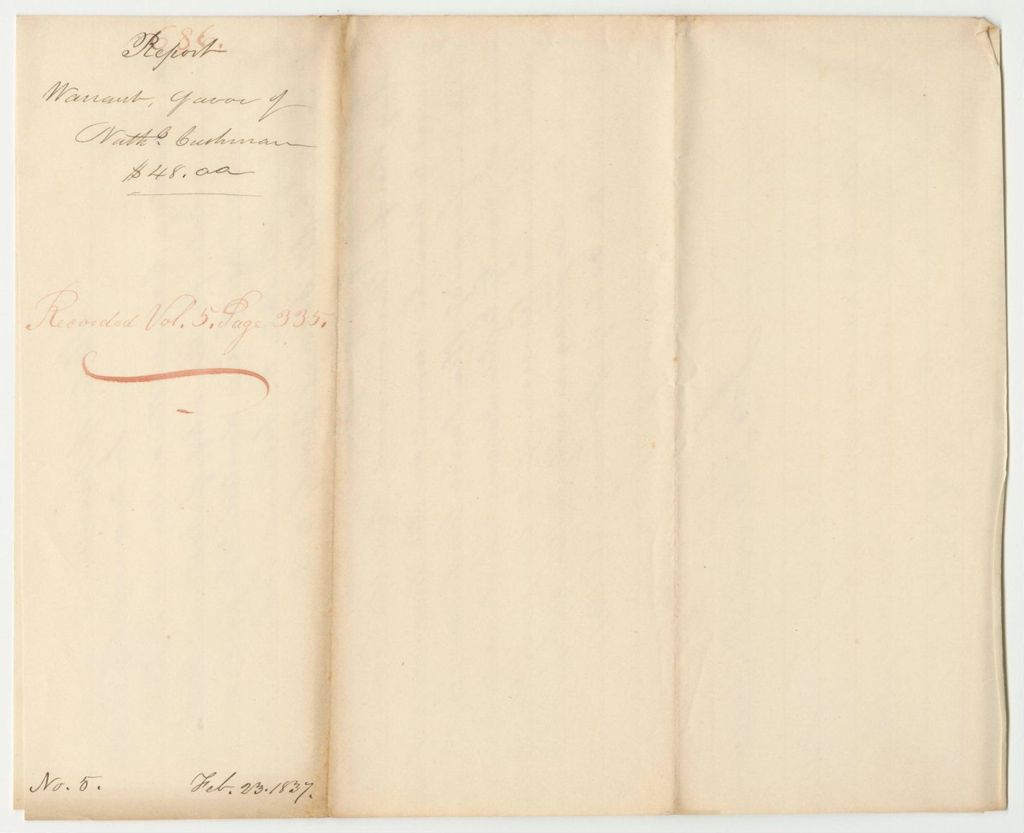 Report
Warrant, favor of
Nath.l Cushman
$48.00
Recorded Vol. 5. Page 335.
No. 5.
Feb. 23. 1837.